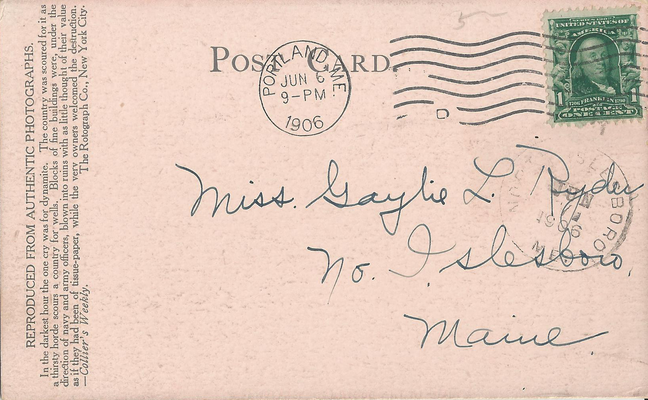 REPRODUCED FROM AUTHENTIC PHOTOGRAPHS.
In the darkest hour the one cry was for dynamite. The country was scoured for it as
a thirsty horde scours a country for wells. Blocks of fine buildings were, under the
direction of navy and army officers, blown into ruins with as little thought of their value
as if they had been of tissue-paper, while the very owners welcomed the destruction.
—Collier's Weekly. The Rotograph Co., New York City.
POST CARD.
PORTLAND, ME.
JUN 6
9-PM
1906
D
5
UNITED STATES OF
AMERICA
1 1
FRANKLIN
ONE CENT
Miss. Gaylie L. Ryder
No. Islesboro,
Maine
ISLESBORO
JUN
1906
ME.